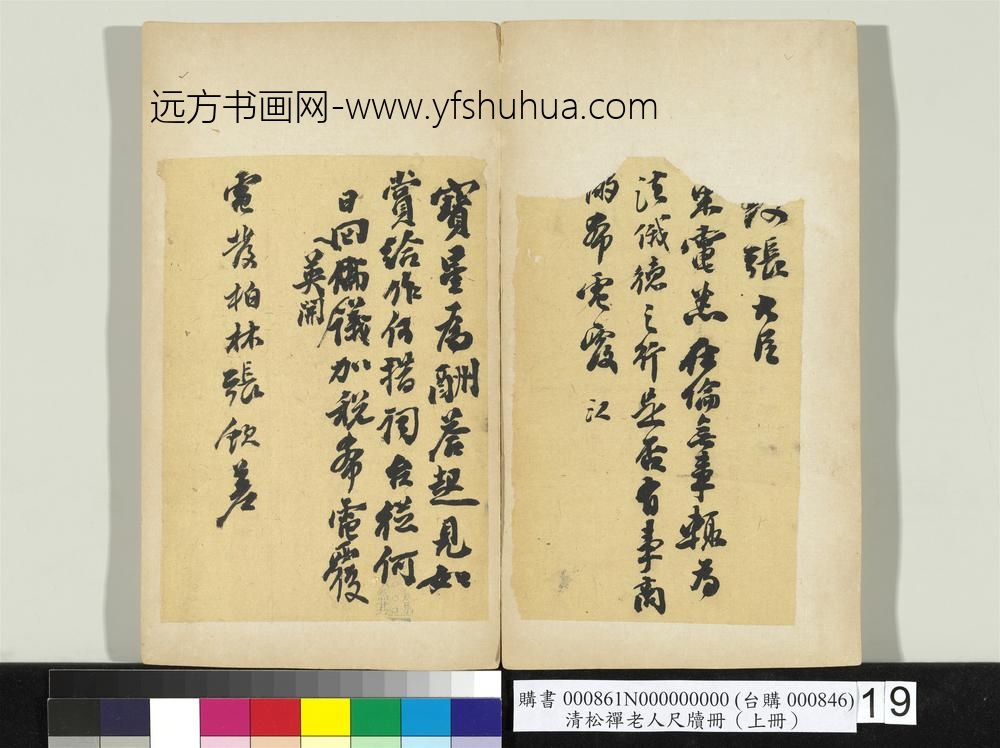 远方书画网-www.yfshuhua.com
張大臣
朱電悉在倫無事輒為
法俄德之行是否有事商
希電覆 江
寶星為酬荅起見如
賞給作何措詞台從何
日回倫議加税希電覆
英開
電發柏林張欽差
購書 000861N000000000 (台購 000846)
清松禪老人尺牘冊（上冊）
19